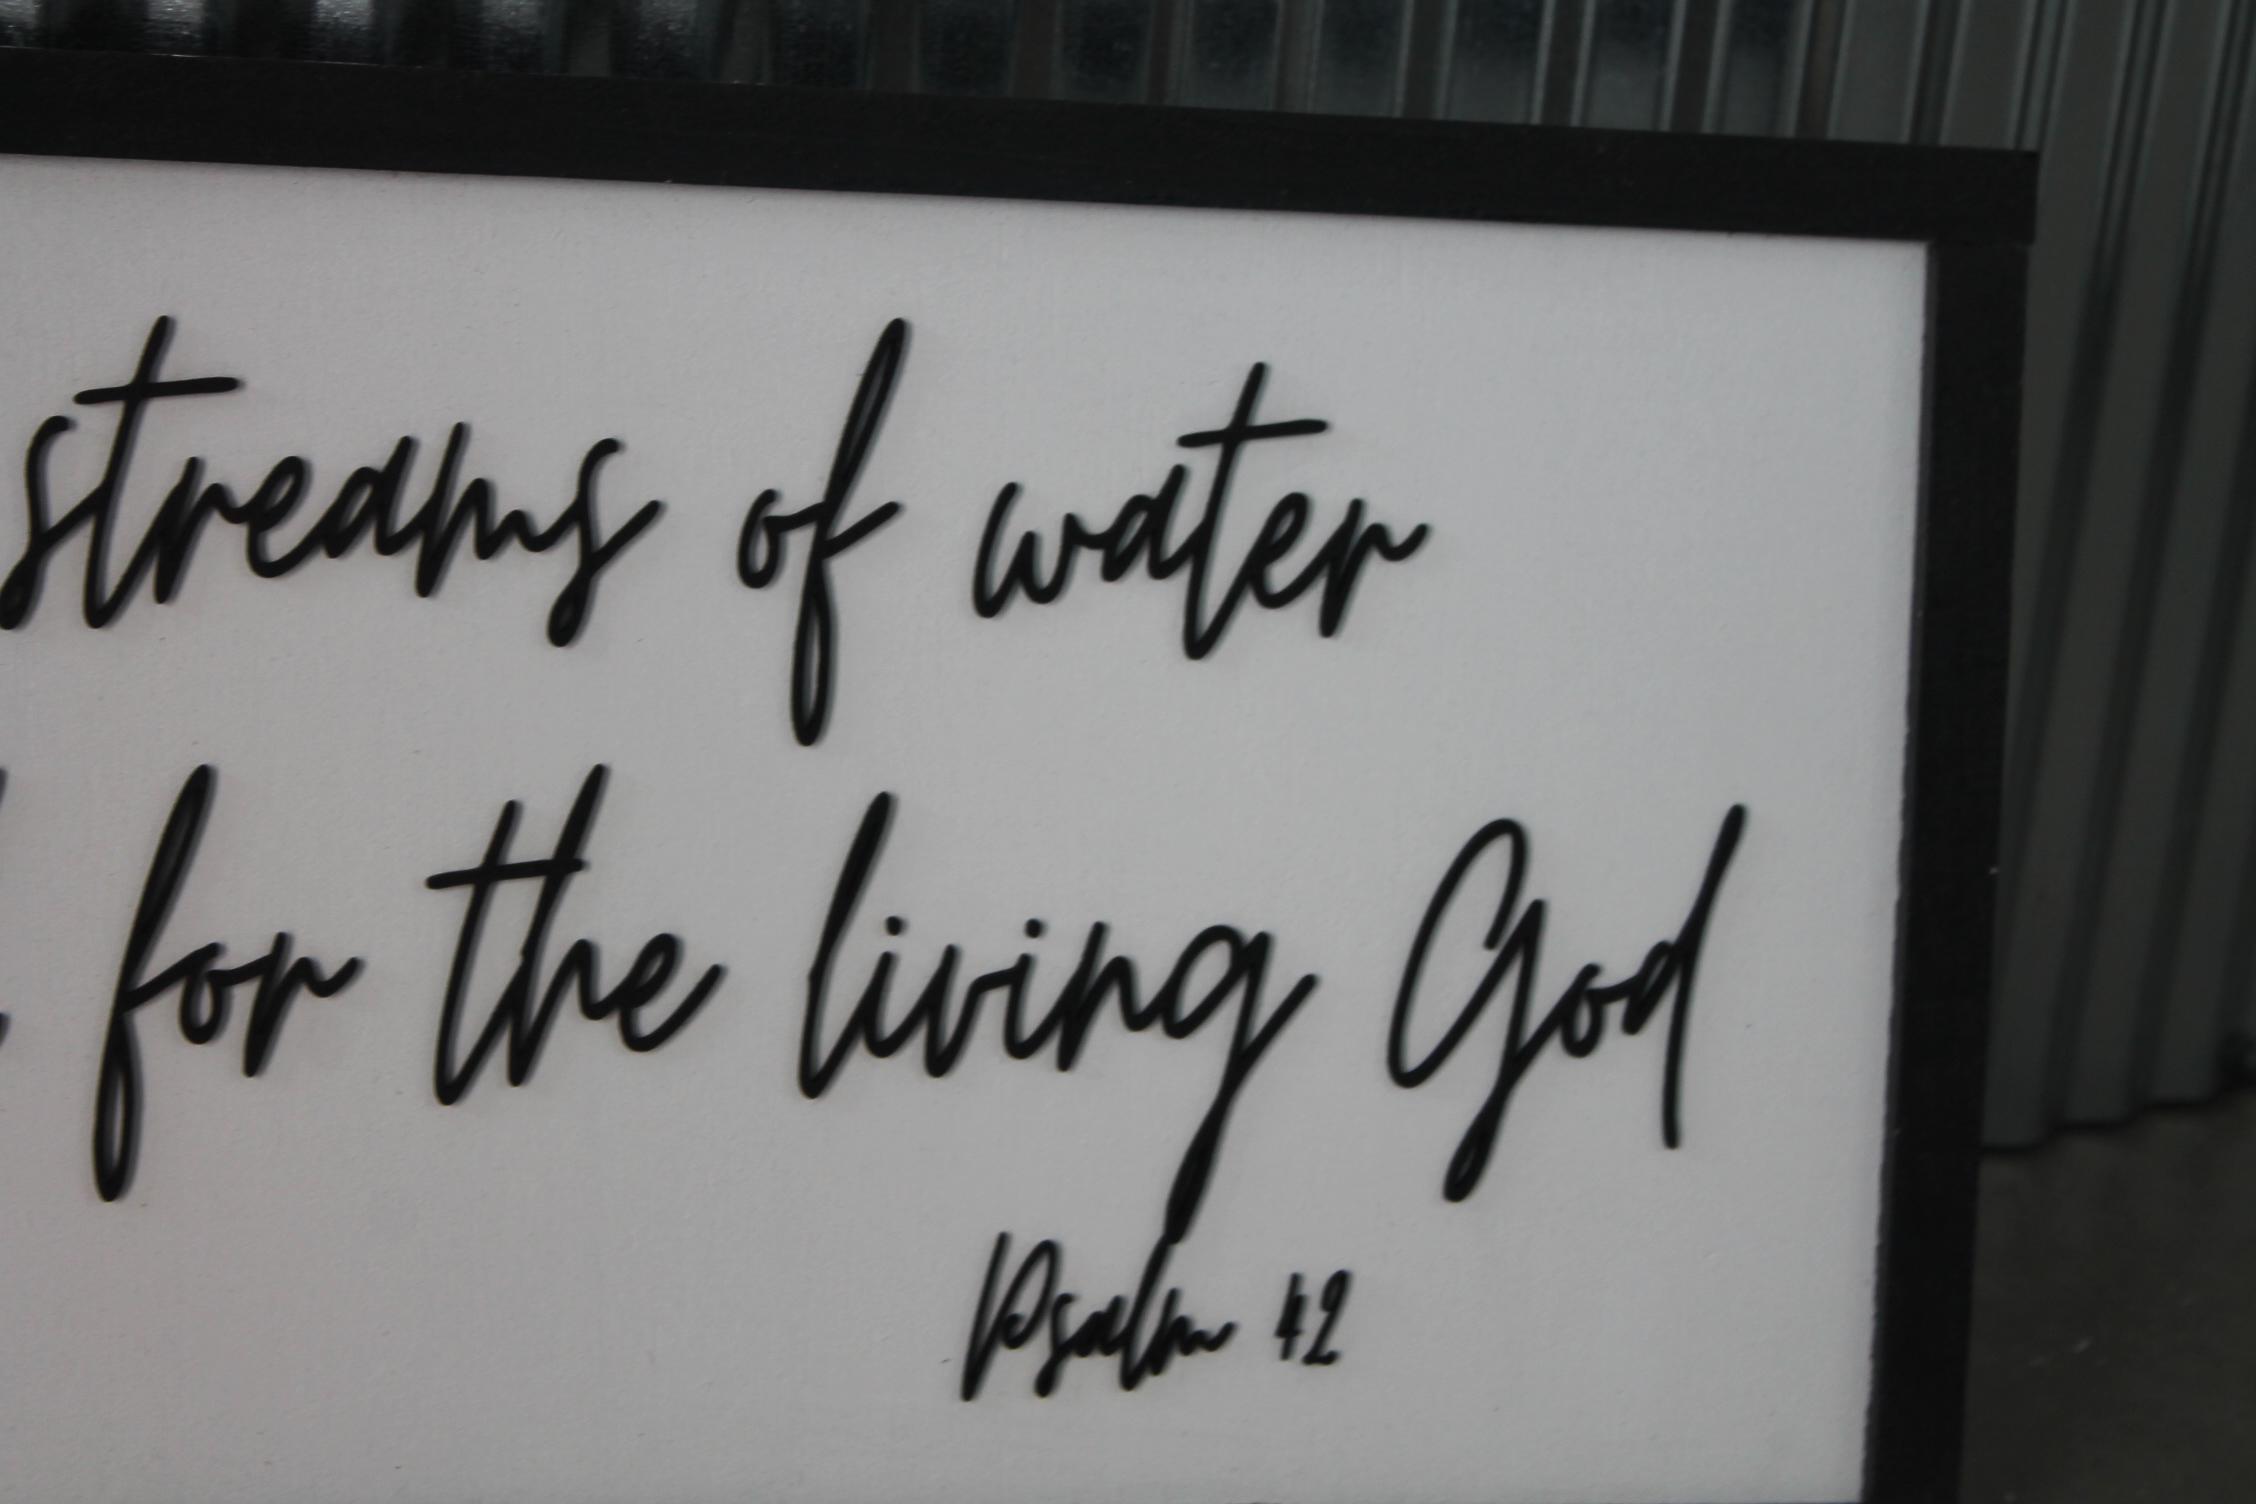 streams of water
for the living God
Psalm 42